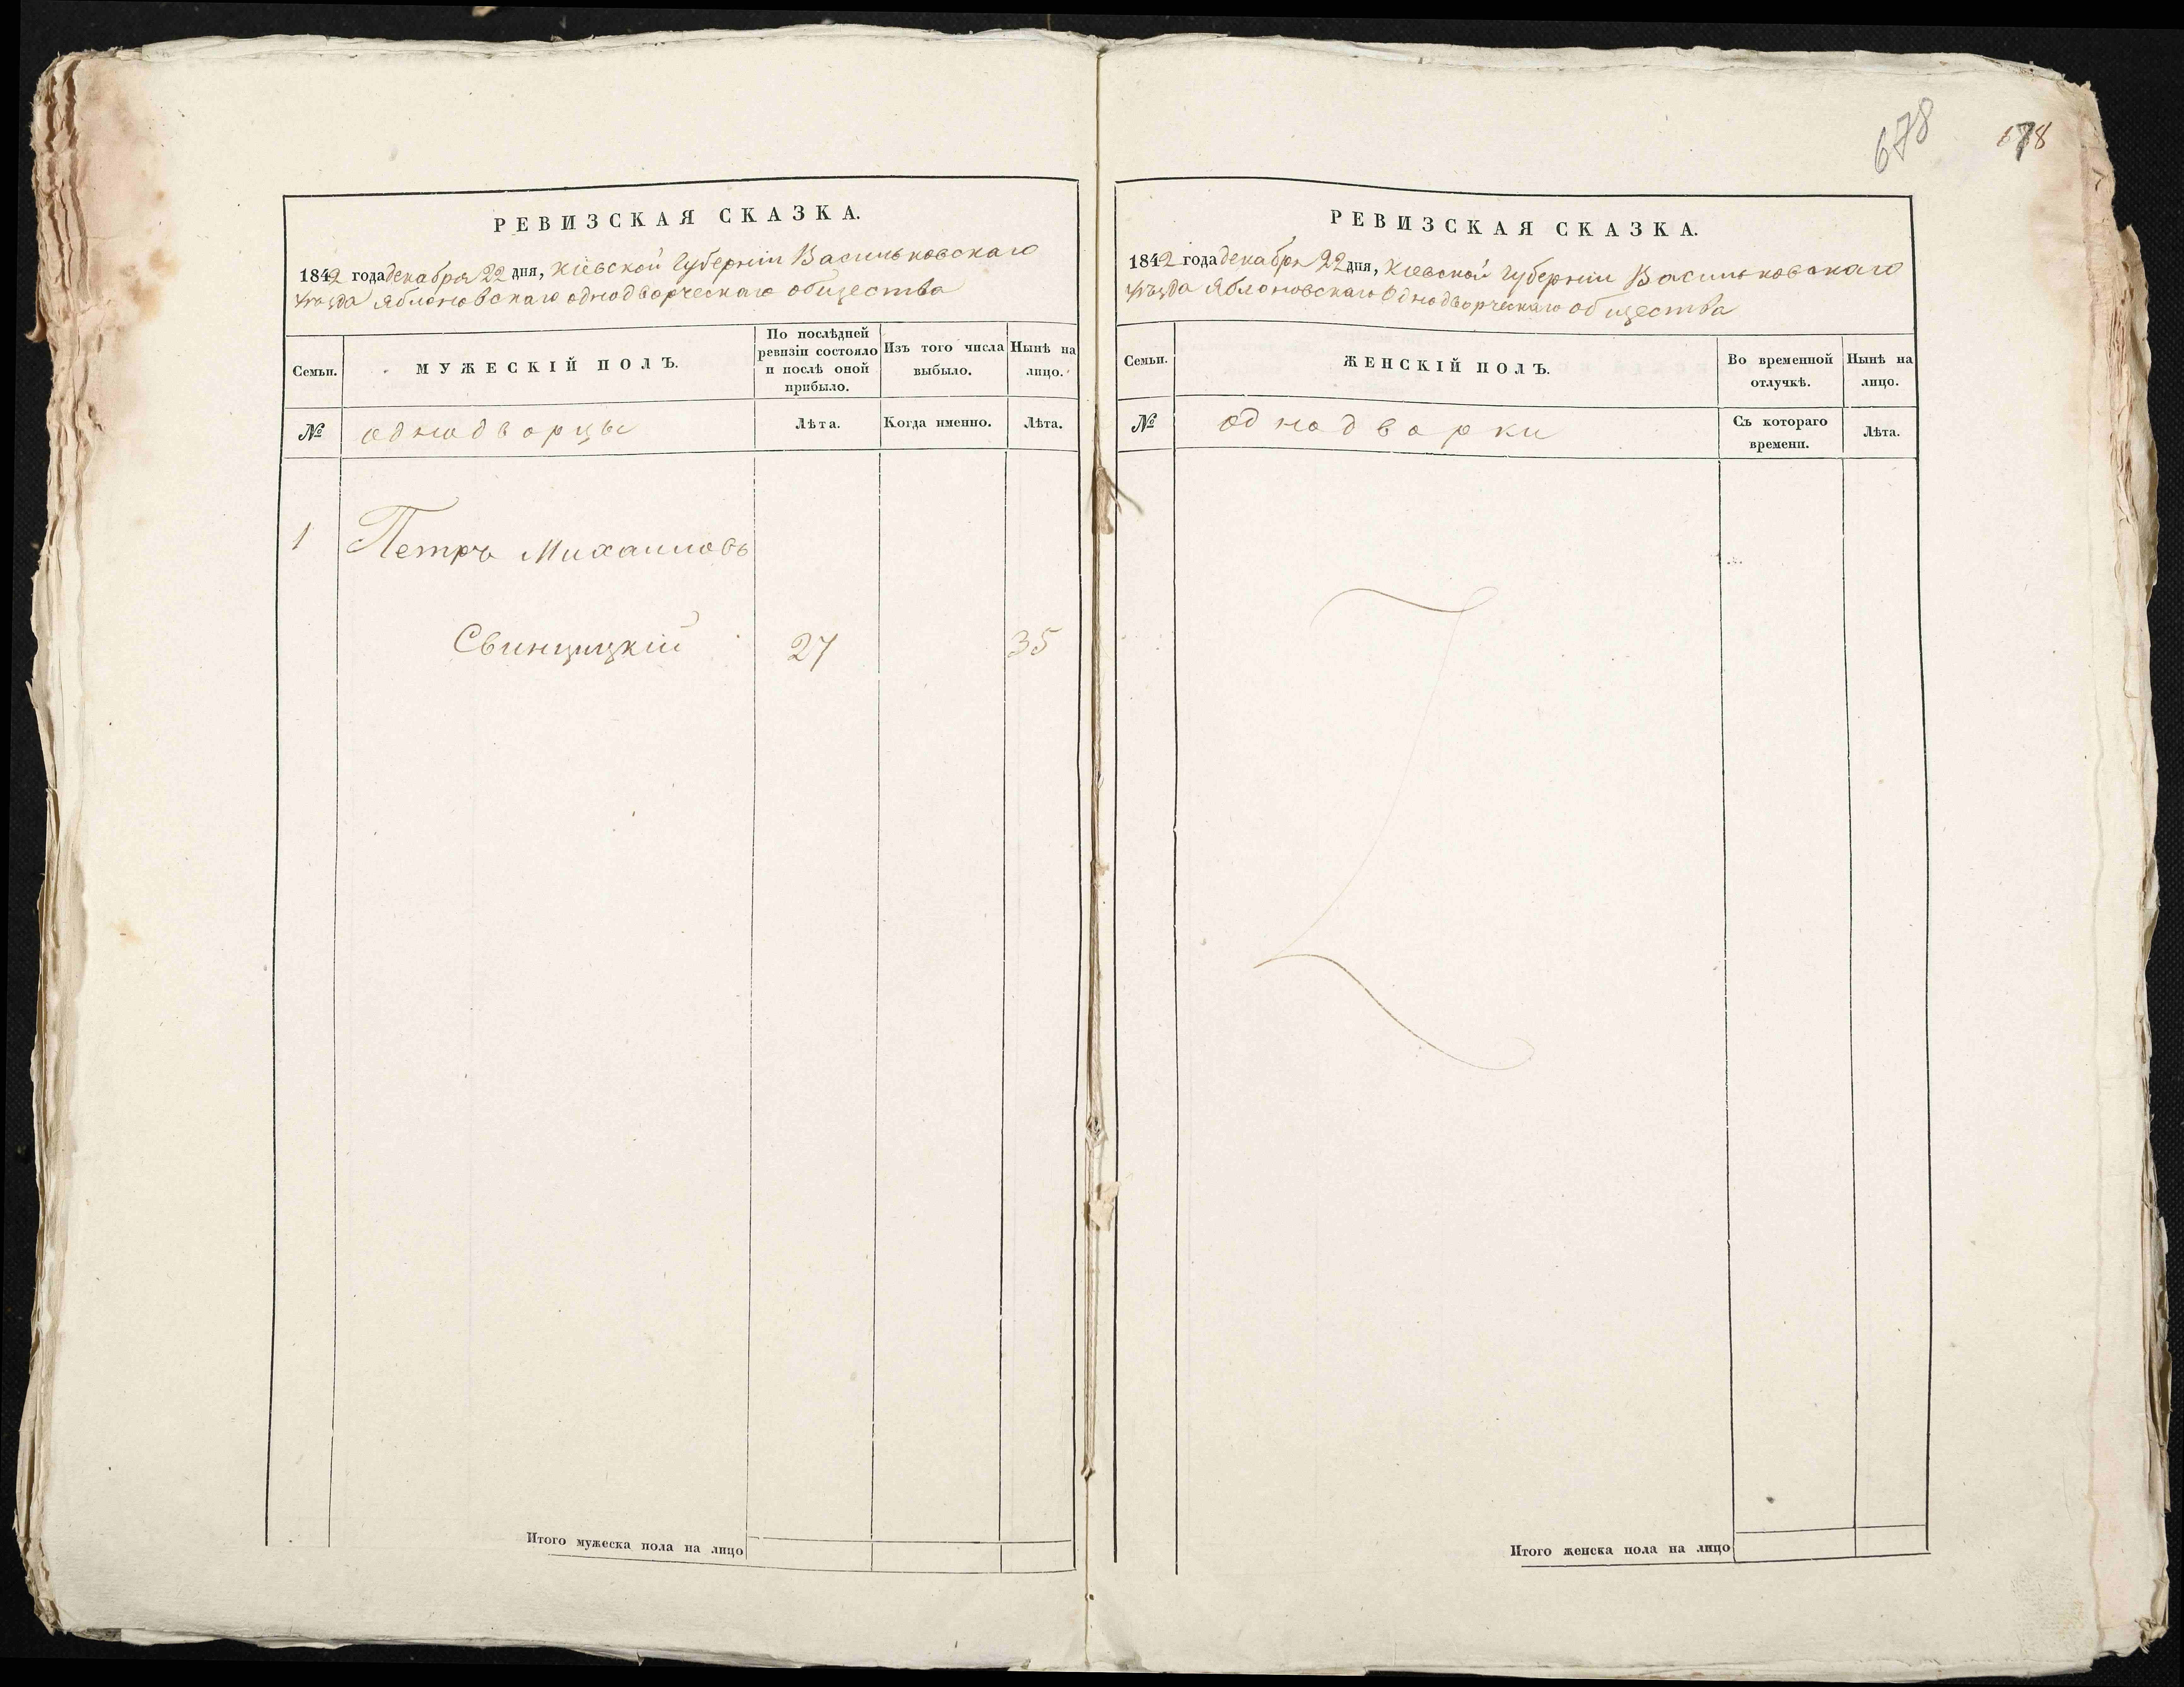 678
678
РЕВИЗСКАЯ СКАЗКА.
1842 года декабря 22 дня, Кіевской Губерніи Васильковскаго
уѣзда Яблоновскаго однодворческаго общества
Семьи.
МУЖЕСКІЙ ПОЛЪ.
По послѣдней
ревизіи состояло
и послѣ оной
прибыло.
Изъ того числа
выбыло.
Нынѣ на
лицо.
№
однодворцы
Лѣта.
Когда именно.
Лѣта.
1
Петръ Михаиловъ
Свинцицкій
27
35
Итого мужеска пола на лицо
РЕВИЗСКАЯ СКАЗКА.
1842 года декабря 22 дня, Кіевской Губерніи Васильковскаго
уѣзда Яблоновскаго Однодворческаго общества
Семьи.
ЖЕНСКІЙ ПОЛЪ.
Во временной
отлучкѣ.
Нынѣ на
лицо.
№
однодворки
Съ котораго
времени.
Лѣта.
Итого женска пола на лицо